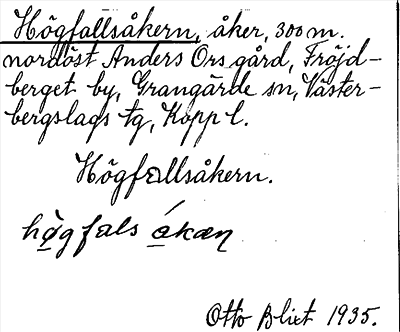 Högfallsåkern, åker, 300 m.
nordöst Anders Ors gård, Fröjd-
berget by, Grangärde sn, Väster-
bergslags tg, Kopp l.
Högfallsåkern.
hö̀gfals åkæṇ
Otto Blixt 1935.